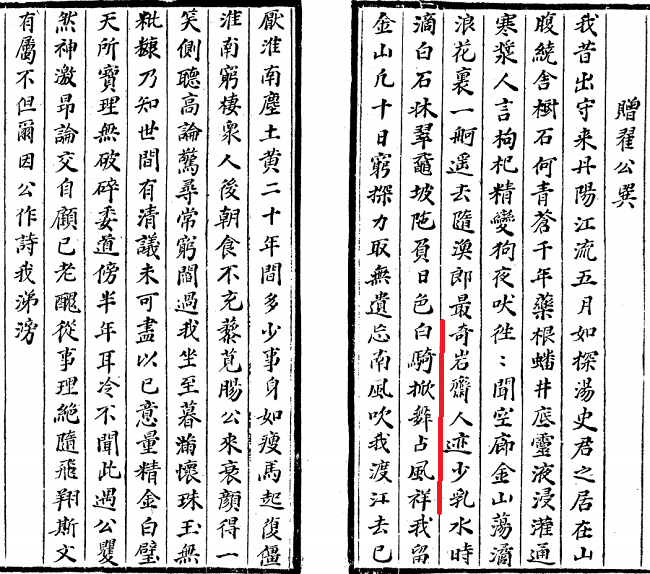 贈翟公巽
我昔出守来丹陽江流五月如探湯史君之居在山
腹繞舍樹石何青蒼千年藥根蟠井底靈液浸灌通
寒漿人言枸杞精變狗夜吠徃:聞空廊金山蕩潏
浪花裏一舸遥去隨漁郎最奇岩齋人迹少乳水時
滴白石牀翠黿坡陁負日色白騎掀舞占風祥我留
金山凢十日窮探力取無遺忘南風吹我渡江去已
厭淮南塵土黄二十年間多少事身如瘦馬起復僵
淮南窮棲衆人後朝食不充藜莧腸公来衰顔得一
笑側聽高論驚尋常窮閻過我坐至暮滿懷珠玉無
粃糠乃知世間有清議未可盡以已意量精金白璧
天所寳理無破碎委道傍半年耳冷不聞此過公矍
然神激昂論交自顧已老醜從事理絶隨飛翔斯文
有屬不但爾因公作詩我涕滂